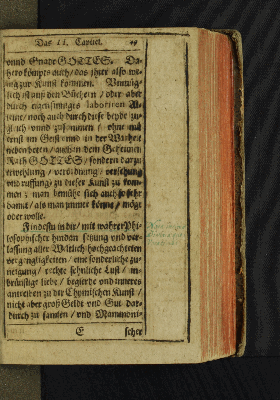 Das II. Capitel. 49
vnnd Gnade GOTTES. Da-
hero könpts auch / das jhrer also we-
nig zur Kunst kommen. Vnmüg-
lich ists auß den Büchern / oder aber
durch eigensinniges laboriren al-
leine / noch auch durch diese beyde zu-
gleich vnnd zusammen / ohne mit
ernst im Geist vnnd in der Warheit
neben beten / auch in dem Geheimen
Rath GOTTES / sondern darzu
erwehlung / verordnung / versehung
vnd ruffung / zu dieser Kunst zu kom-
men: man bemühe sich auch so sehr
damit / als man jmmer könne / möge
oder wolle.
Findestu in dir / mit wahrer Phi-
losophischer hindan setzung vnd ver-
lassung aller Weltlich hochgeachteten
vergengligkeiten / eine sonderliche zu-
neigung / rechte sehnliche Lust / in-
brünstige liebe / begierde vnd inneres
antreiben zu der Chymischen Kunst /
nicht aber groß Geldt vnd Gut dar-
durch zu samlen / vnd Mammoni-
E scher